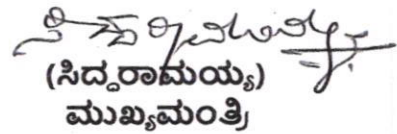 (ಸಿದ್ದರಾಮಯ್ಯ)
ಮುಖ್ಯಮಂತ್ರಿ